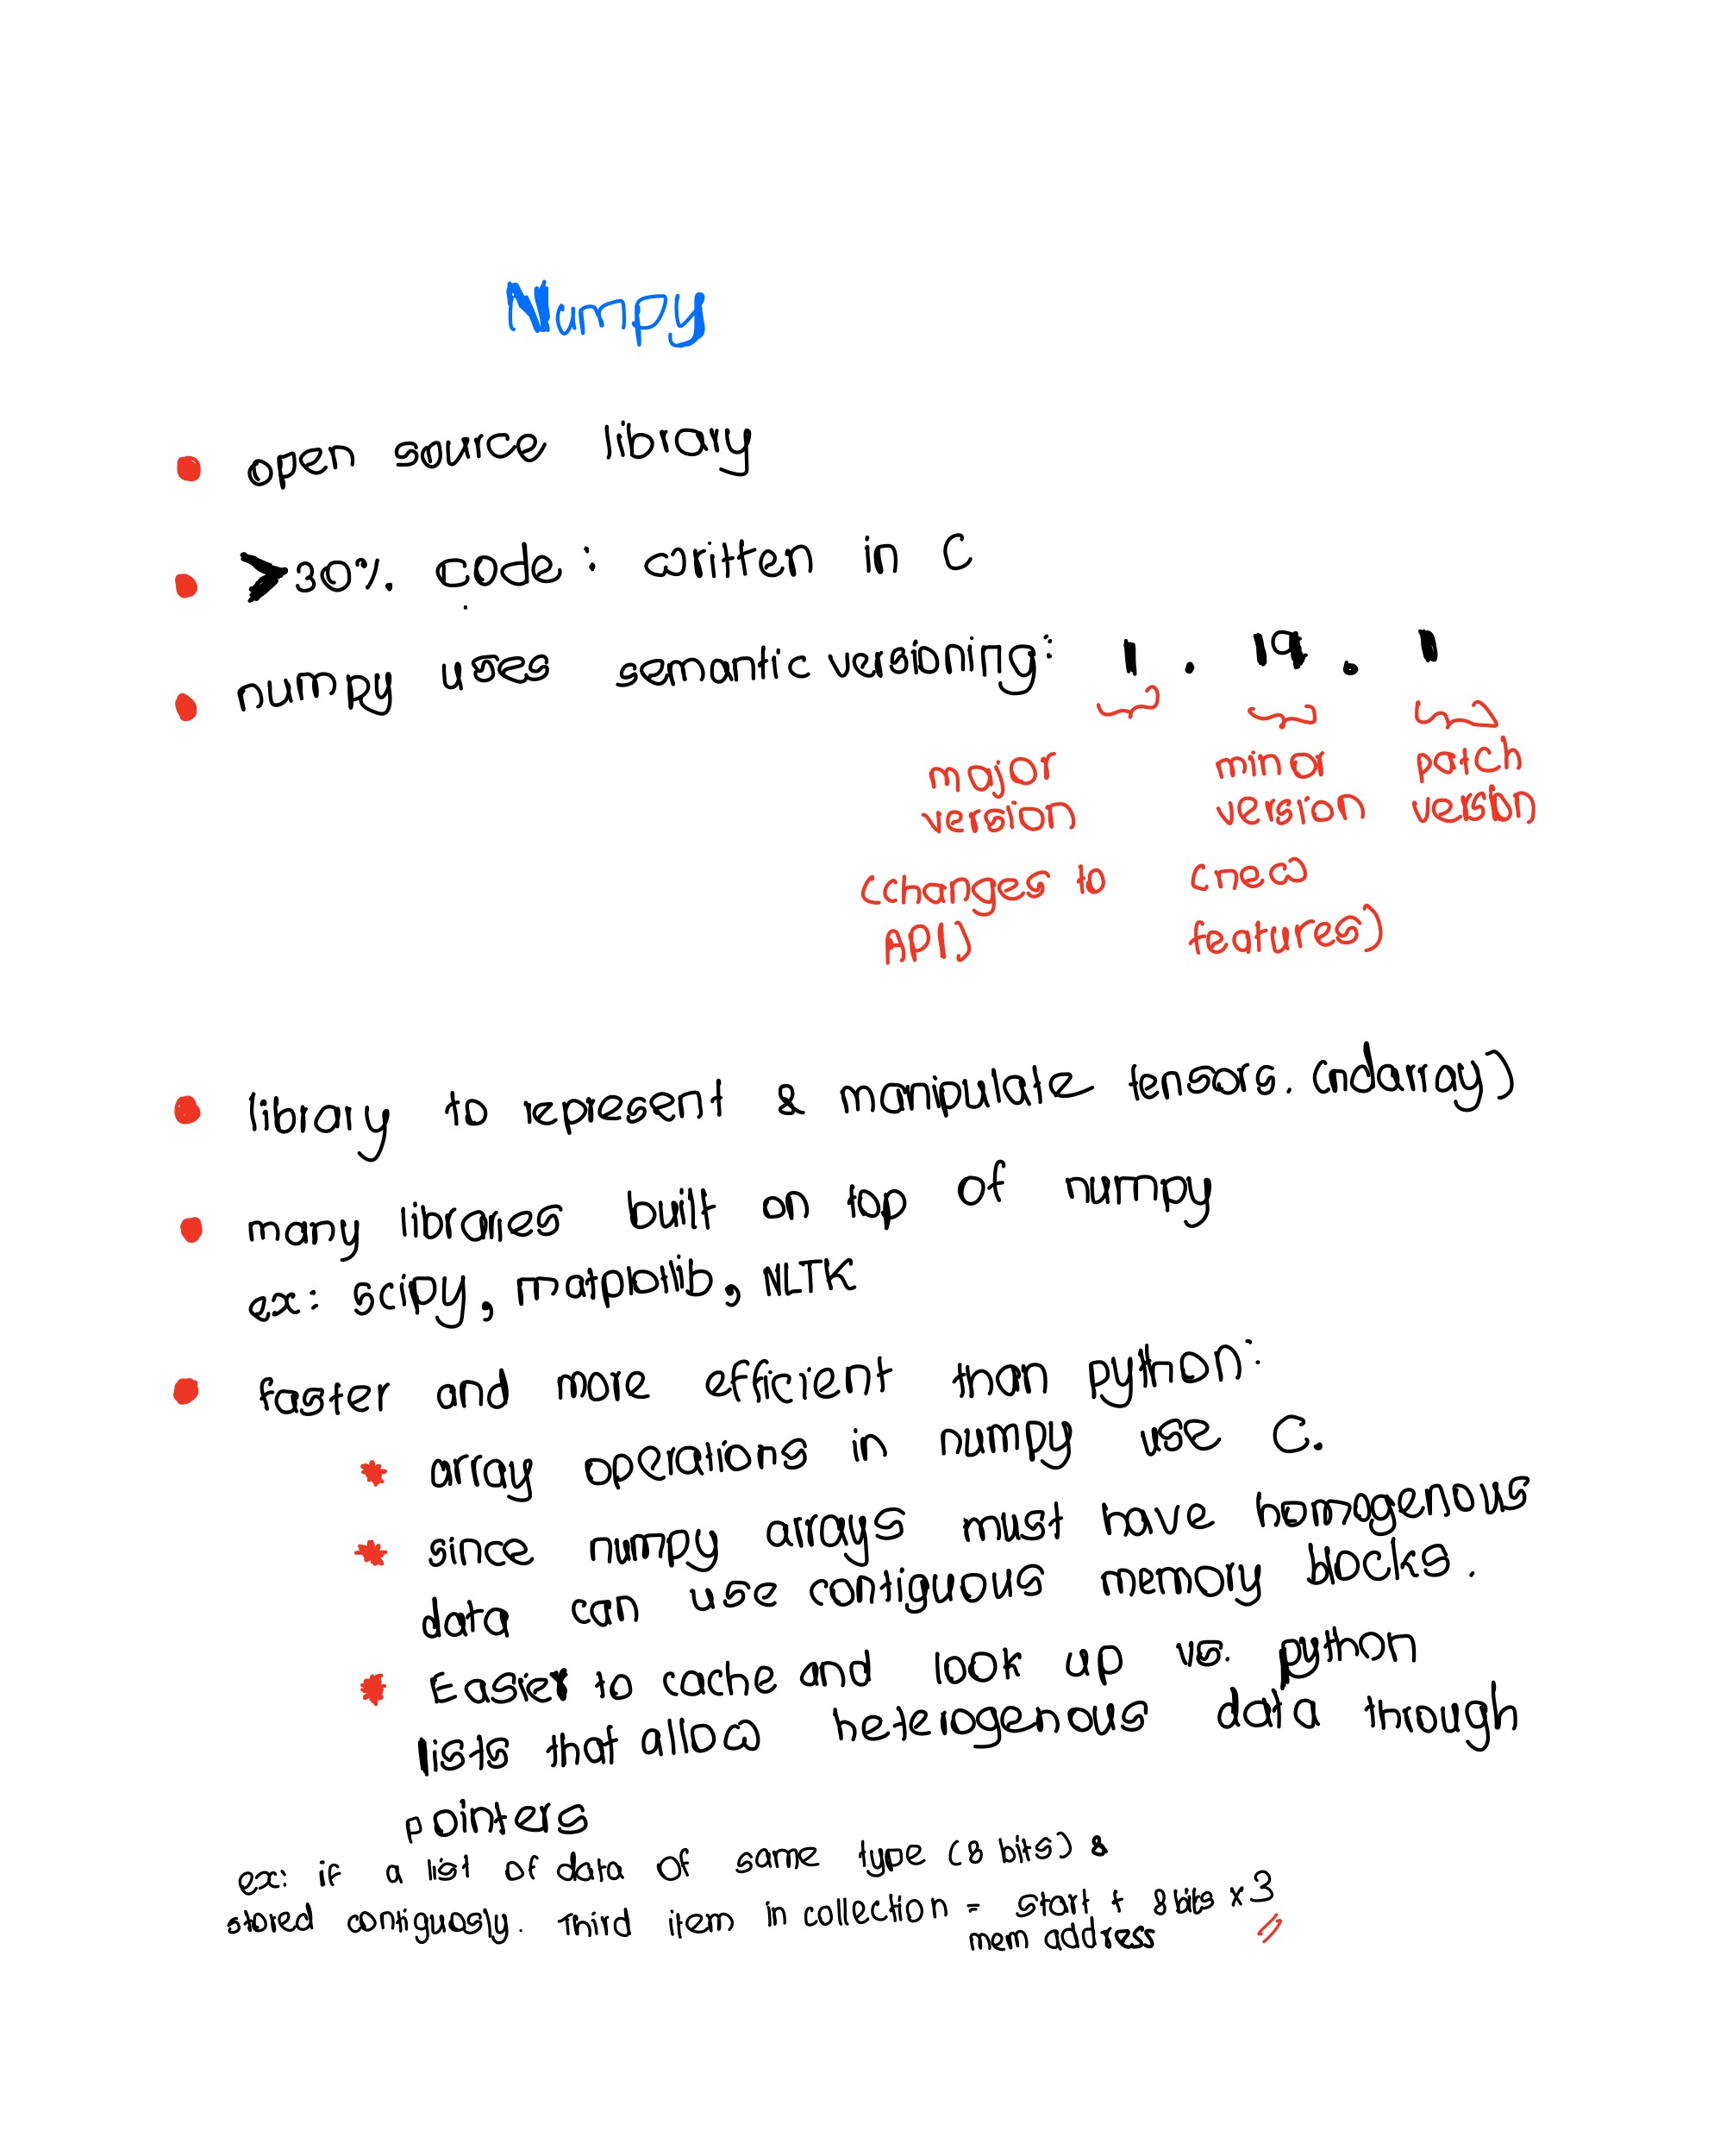 Numpy
open source library
>30% code: written in C
numpy uses semantic versioning: 1 . 19 . 1
major minor patch
version version version
(changes to (new
API) features)
library to represent & manipulate tensors. (ndarray)
many libraries built on top of numpy
ex: scipy, matplotlib, NLTK
faster and more efficient than python:
* array operations in numpy use C.
* since numpy arrays must have homogenous
data can use contiguous memory blocks.
* Easier to cache and look up vs. python
lists that allow heterogenous data through
pointers
ex: if a list of data of same type (8 bits) &
stored contiguosly. Third item in collection = start + 8 bits x 3
mem address